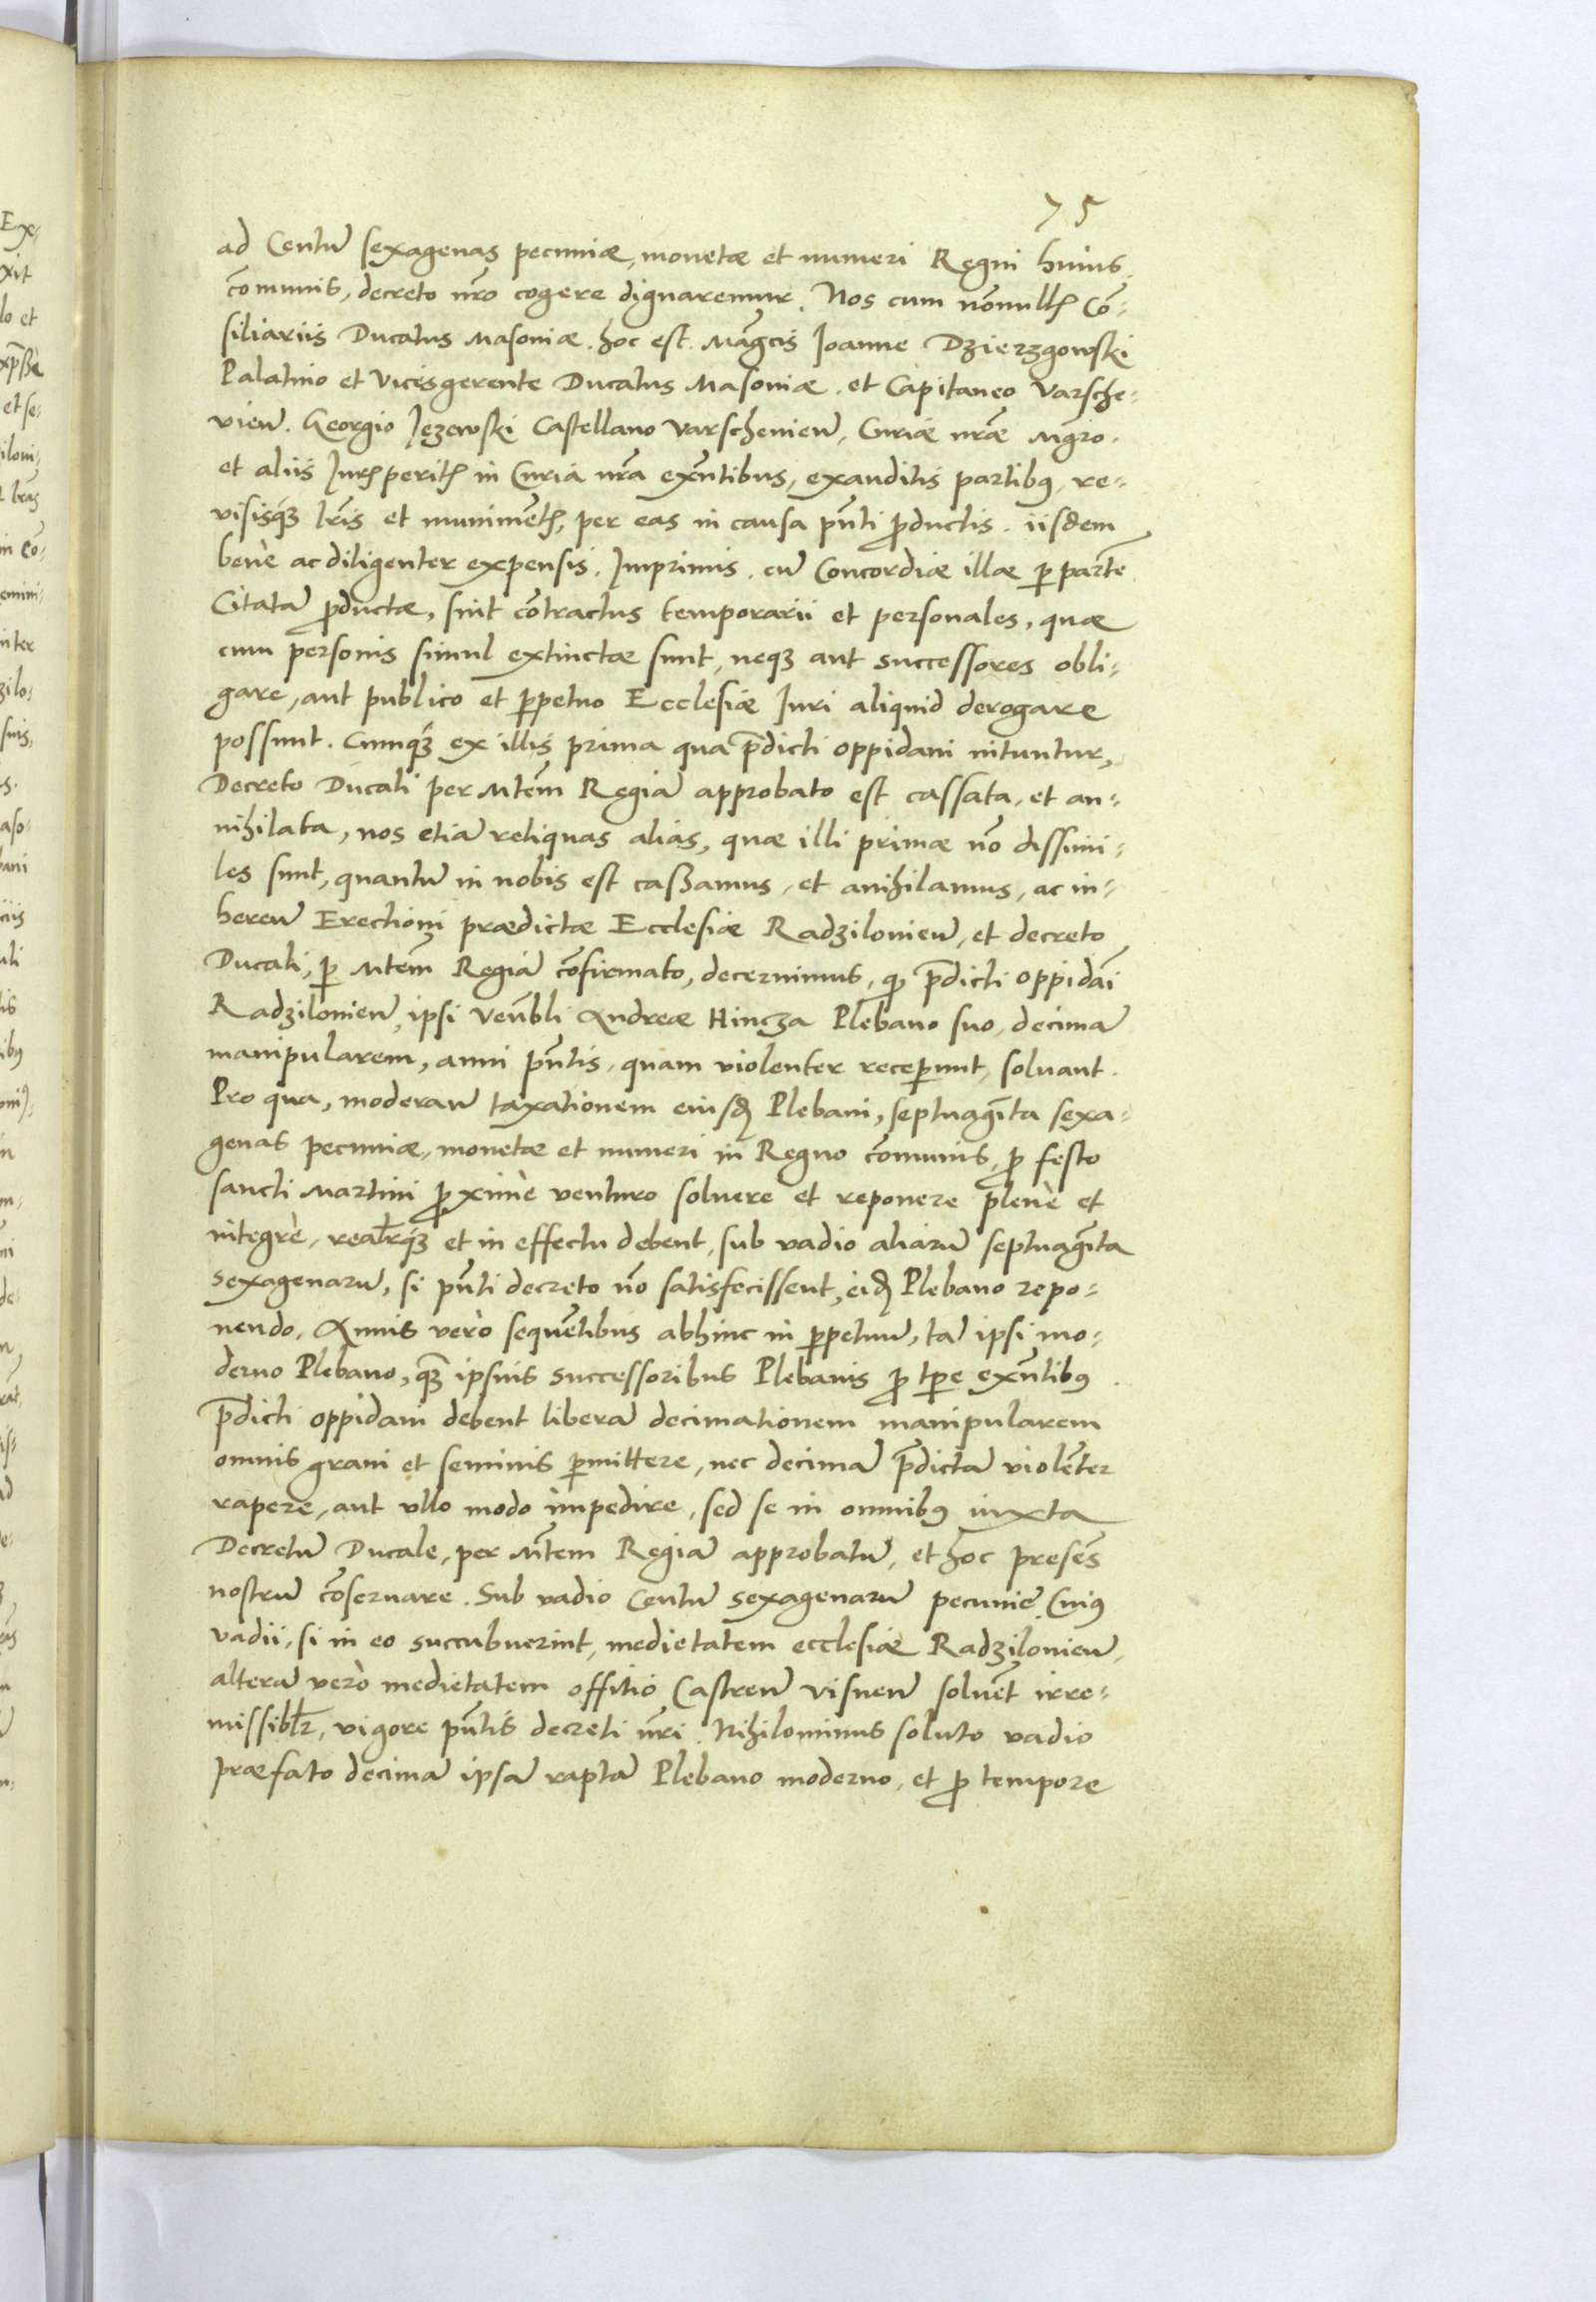 75
ad Centũ sexagenas pecuniæ, monetæ et numeri Regni huius
cõmunis, decreto nr̃o cogere dignaremur. Nos cum nõnullꝭ Cõ-
siliariis Ducatus Masoviæ. hoc est. Mãgcis Joanne Dzierzgowski
Palatino et Vicesgerente Ducatus Masoviæ. et Capitaneo Varsche-
vieñ. Georgio Jezewski Castellano Varschevieñ, Curiæ nr̃æ Mg̃ro.
et aliis Jurꝭperitꝭ in Curia nr̃a exñtibus, exauditis partibꝰ, re-
visisq̃ꝫ lr̃is et munimẽtꝭ, per eas in causa pñti ꝓductis. iisdem
benè ac diligenter expensis. Imprimis. cũ Concordiæ illæ ꝑ partẽ
Citatã ꝓductæ, sint cõtractus temporarii et personales, quæ
cum personis simul extinctæ sunt, neqꝫ aut successores obli-
gare, aut publico et ꝑpetuo Ecclesiæ Juri aliquid derogare
possunt. Cumq́ꝫ ex illis prima qua p̃dicti oppidani nituntur,
Decreto Ducali per Mtẽm Regiã approbato est cassata, et an-
nihilata, nos etiã reliquas alias, quæ illi primæ nõ dissimi-
les sunt, quantũ in nobis est caßamus, et anihilamus, ac in-
hereñ Erectioni prædictæ Ecclesiæ Radzilovieñ, et decreto
Ducali, ꝑ Mtẽm Regiã cõfirmato, decernimus, qꝫ p̃dicti oppidãi
Radzilovieñ, ipsi Veñbli Andreæ Hincza Plebano suo, decimã
manipularem, anni pñtis, quam violenter receꝑunt, solvant.
Pro qua, moderañ taxationem eiusđ Plebani, septuagĩta sexa-
genas pecuniæ, monetæ et numeri in Regno cõmunis, ꝓ festo
sancti Martini ꝓximè venturo solvere et reponere plenè et
integrè, realr̃q́ꝫ et in effectu debent, sub vadio aliarũ septuagĩta
sexagenarũ, si pñti decreto nõ satisfecissent, eiđ Plebano repo-
nendo. Annis verò sequẽtibus abhinc in ꝑpetuũ, tã ipsi mo-
derno Plebano, q̃ꝫ ipsius successoribus Plebanis ꝓ tꝑe exñtibꝰ
p̃dicti oppidani debent liberã decimationem manipularem
omnis grani et seminis ꝑmittere, nec decimã p̃dictã violẽter
rapere, aut ullo modo impedire, sed se in omnibꝰ iuxta
Decretũ Ducale, per Mtẽm Regiã approbatũ, et hoc presẽs
nostrũ cõservare. Sub vadio Centũ sexagenarũ pecunie. Cuiꝰ
vadii, si in eo succubuerint, medietatem ecclesiæ Radzilovieñ,
alterã verò medietatem offitio Castreñ Visneñ solvẽt irre-
missiblr̃, vigore pñtis decreti nr̃i. Nihilominus soluto vadio
præfato decimã ipsã raptã Plebano moderno, et ꝓ tempore